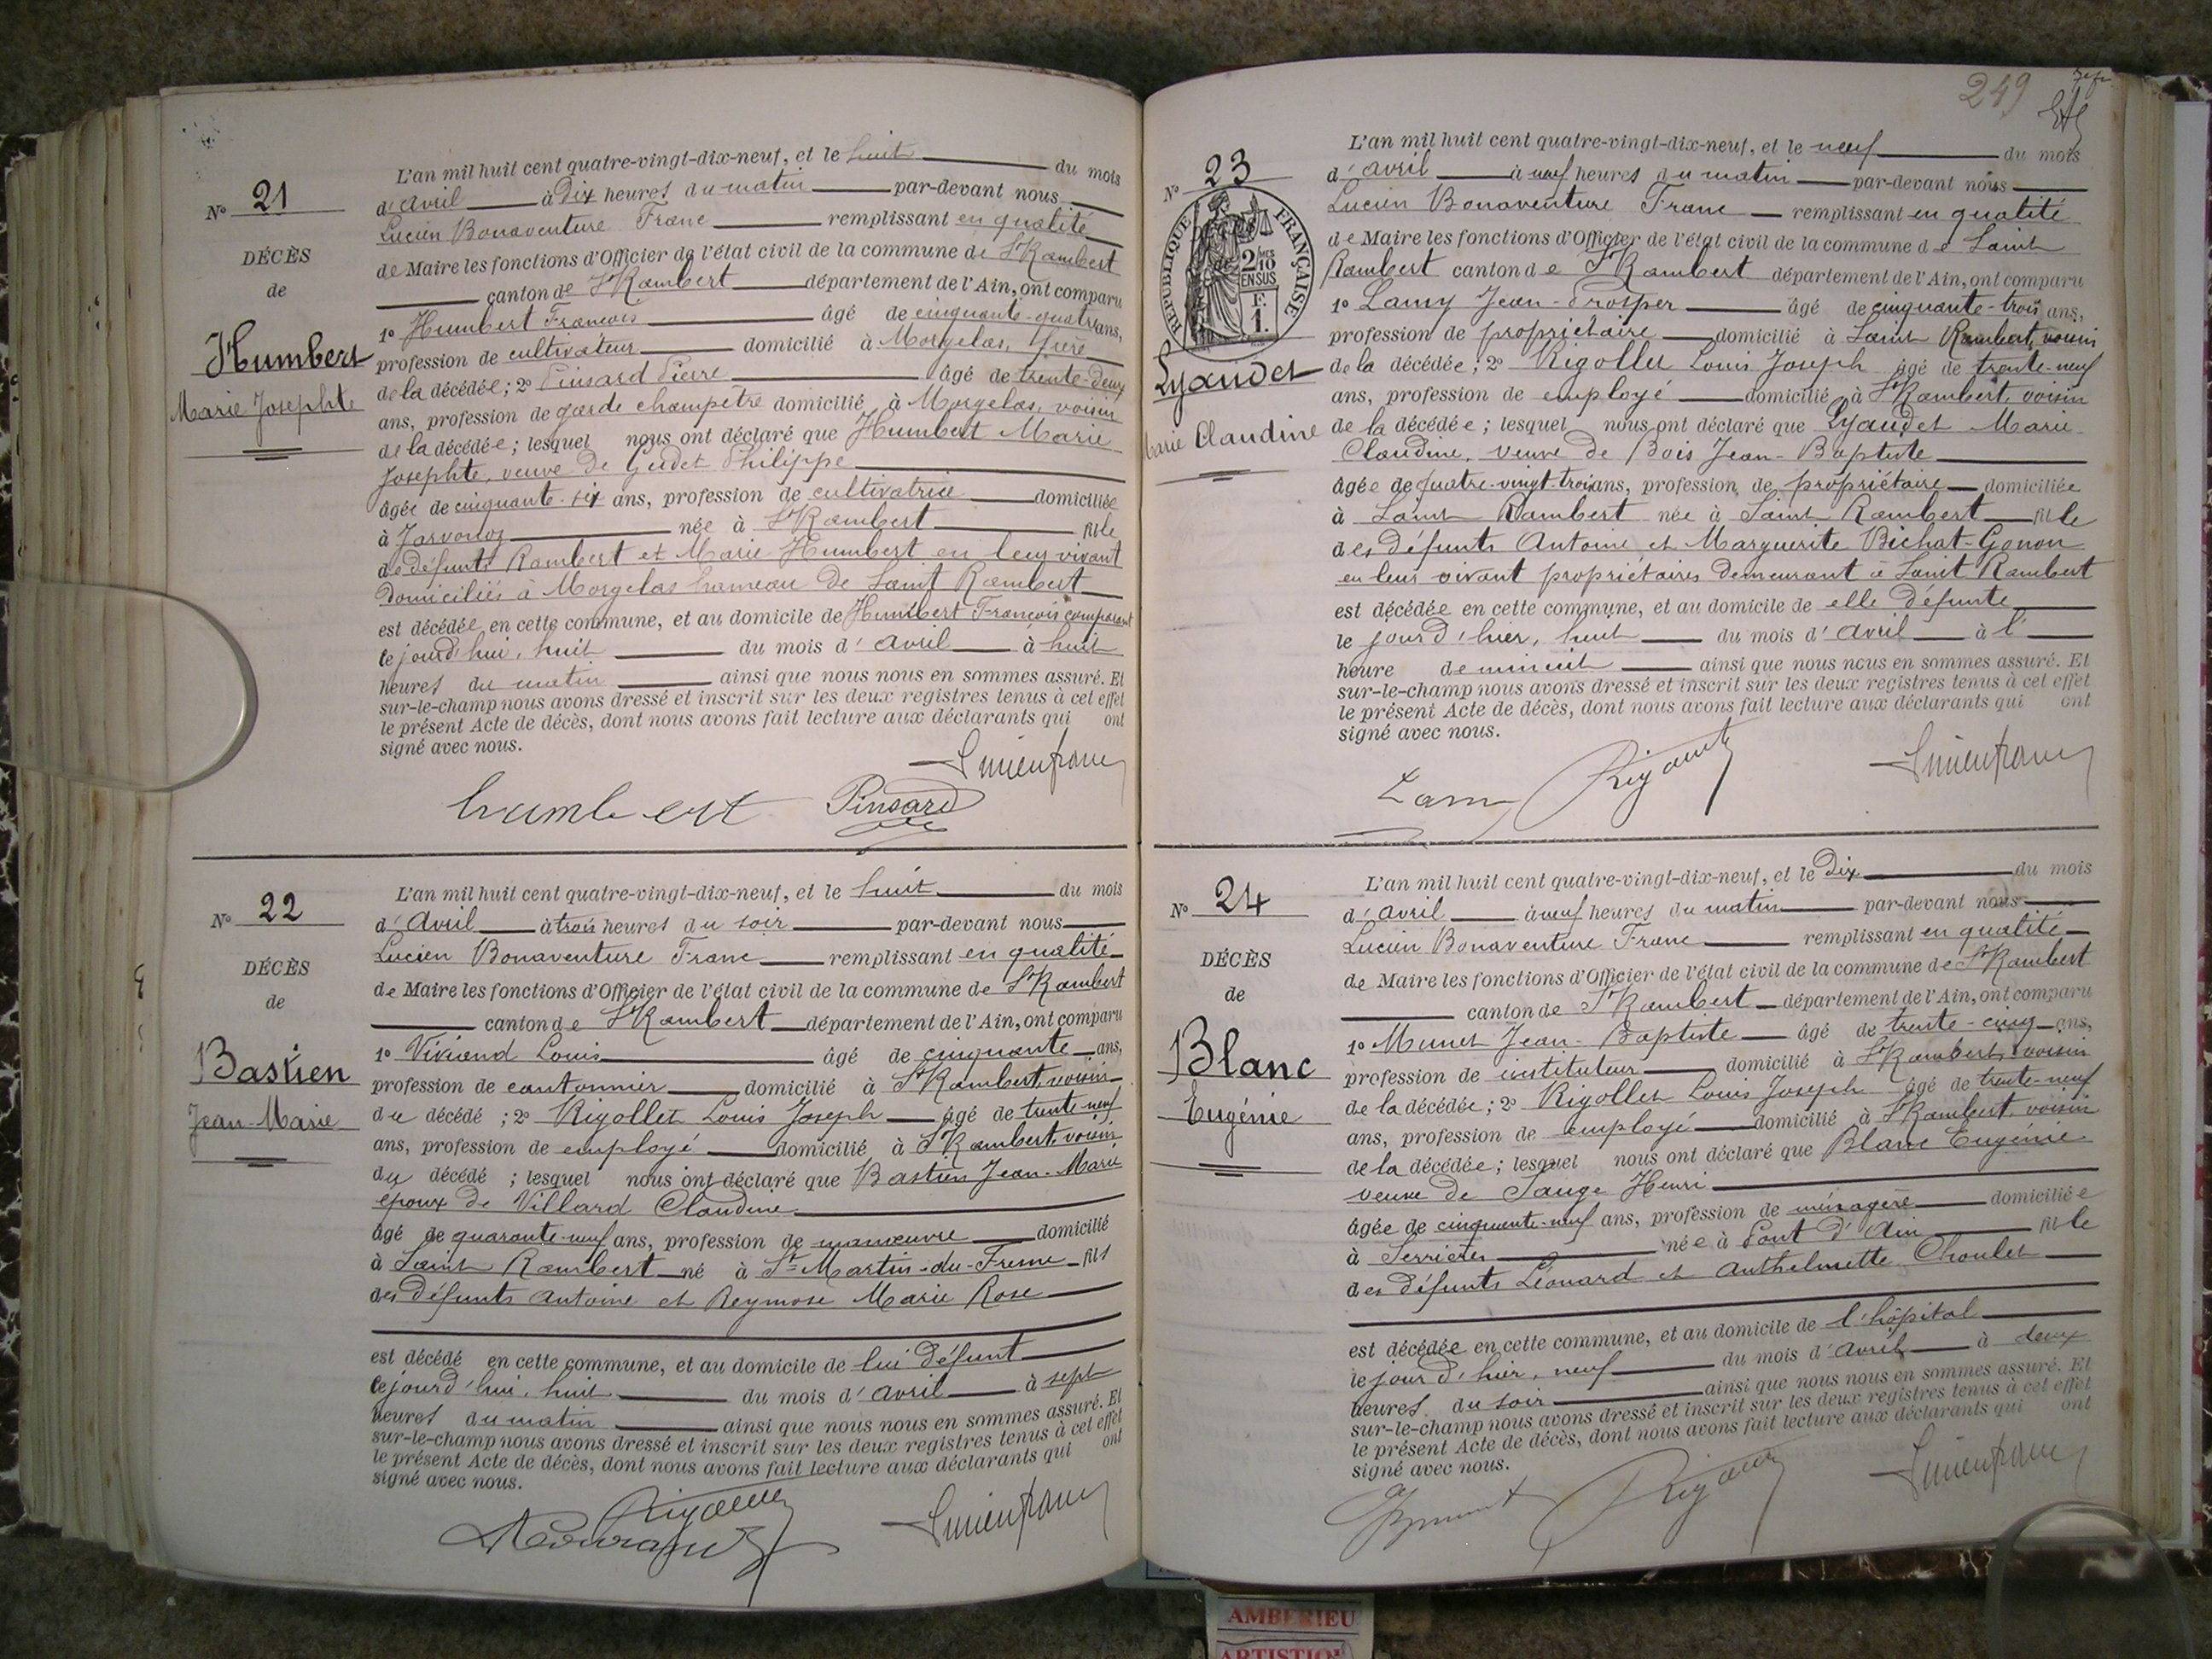 N° 21
DÉCÈS
de
Humbert
Marie Josephte
L'an mil huit cent quatre-vingt-dix-neuf, et le huit du mois
d'avril à Dix heures du matin par-devant nous
Lucien Bonaventure Franc remplissant en qualité
de Maire les fonctions d'Officier de l'état civil de la commune de St Rambert
canton de St Rambert département de l'Ain, ont comparu
1° Humbert François âgé de cinquante-quatre ans,
profession de cultivateur domicilié à Morgelas, frère
de la décédée; 2° Pinsard Pierre âgé de trente-deux
ans, profession de garde champêtre domicilié à Morgelas, voisin
de la décédée; lesquel nous ont déclaré que Humbert Marie
Josephte, veuve de Gudet Philippe
âgée de cinquante-six ans, profession de cultivatrice domiciliée
à née à St Rambert fille
de défunts Rambert et Marie Humbert en leur vivant
domiciliés à Morgelas hameau de Saint Rambert
est décédée en cette commune, et au domicile de Humbert François comparant
cejourd'hui, huit du mois d'avril à huit
heures du matin ainsi que nous nous en sommes assuré. Et
sur-le-champ nous avons dressé et inscrit sur les deux registres tenus à cet effet
le présent Acte de décès, dont nous avons fait lecture aux déclarants qui ont
signé avec nous.
Lucien franc
humbert Pinsard
N° 22
DÉCÈS
de
Bastien
Jean-Marie
L'an mil huit cent quatre-vingt-dix-neuf, et le huit du mois
d'Avril à trois heures du soir par-devant nous
Lucien Bonaventure Franc remplissant en qualité
de Maire les fonctions d'Officier de l'état civil de la commune de St Rambert
canton de St Rambert département de l'Ain, ont comparu
1° Louis âgé de cinquante ans,
profession de cantonnier domicilié à St Rambert, voisin
du décédé; 2° Rigollet Louis Joseph âgé de trente-neuf
ans, profession de employé domicilié à St Rambert, voisin
du décédé; lesquel nous ont déclaré que Bastien Jean-Marie
époux de Villard Claudine
âgé de quarante-neuf ans, profession de manœuvre domicilié
à Saint Rambert né à St Martin-du-Fresne fils
des défunts Antoine et Reymose Marie Rose
est décédé en cette commune, et au domicile de lui défunt
cejourd'hui, huit du mois d'avril à sept
heures du matin ainsi que nous nous en sommes assuré. Et
sur-le-champ nous avons dressé et inscrit sur les deux registres tenus à cet effet
le présent Acte de décès, dont nous avons fait lecture aux déclarants qui ont
signé avec nous.
Lucien franc
249
N° 23
RÉPUBLIQUE FRANÇAISE
2/10 EN SUS
F. 1.
Lyaudet
Marie Claudine
L'an mil huit cent quatre-vingt-dix-neuf, et le neuf du mois
d'avril à neuf heures du matin par-devant nous
Lucien Bonaventure Franc remplissant en qualité
de Maire les fonctions d'Officier de l'état civil de la commune de Saint
Rambert canton de St Rambert département de l'Ain, ont comparu
1° Lamy Jean-Prosper âgé de cinquante-trois ans,
profession de propriétaire domicilié à Saint Rambert, voisin
de la décédée; 2° Rigollet Louis Joseph âgé de trente-neuf
ans, profession de employé domicilié à St Rambert, voisin
de la décédée; lesquel nous ont déclaré que Lyaudet Marie
Claudine, veuve de Bois Jean-Baptiste
âgée de quatre-vingt-trois ans, profession de propriétaire domiciliée
à Saint Rambert née à Saint Rambert fille
des défunts Antoine et Marguerite Bichat-Gonon
en leur vivant propriétaires demeurant à Saint Rambert
est décédée en cette commune, et au domicile de elle défunte
le jour d'hier, huit du mois d'avril à l'
heure de minuit ainsi que nous nous en sommes assuré. Et
sur-le-champ nous avons dressé et inscrit sur les deux registres tenus à cet effet
le présent Acte de décès, dont nous avons fait lecture aux déclarants qui ont
signé avec nous.
Lamy Lucien franc
N° 24
DÉCÈS
de
Blanc
Eugénie
L'an mil huit cent quatre-vingt-dix-neuf, et le Dix du mois
d'avril à neuf heures du matin par-devant nous
Lucien Bonaventure Franc remplissant en qualité
de Maire les fonctions d'Officier de l'état civil de la commune de St Rambert
canton de St Rambert département de l'Ain, ont comparu
1° Jean-Baptiste âgé de trente-cinq ans,
profession de instituteur domicilié à St Rambert, voisin
de la décédée; 2° Rigollet Louis Joseph âgé de trente-neuf
ans, profession de employé domicilié à St Rambert, voisin
de la décédée; lesquel nous ont déclaré que Blanc Eugénie
veuve de Sauge Henri
âgée de cinquante-neuf ans, profession de ménagère domiciliée
à Serrières née à Pont d'Ain fille
des défunts Léonard et Anthelmette Choulet
est décédée en cette commune, et au domicile de l'hôpital
le jour d'hier, neuf du mois d'avril à deux
heures du soir ainsi que nous nous en sommes assuré. Et
sur-le-champ nous avons dressé et inscrit sur les deux registres tenus à cet effet
le présent Acte de décès, dont nous avons fait lecture aux déclarants qui ont
signé avec nous.
Lucien franc
AMBERIEU